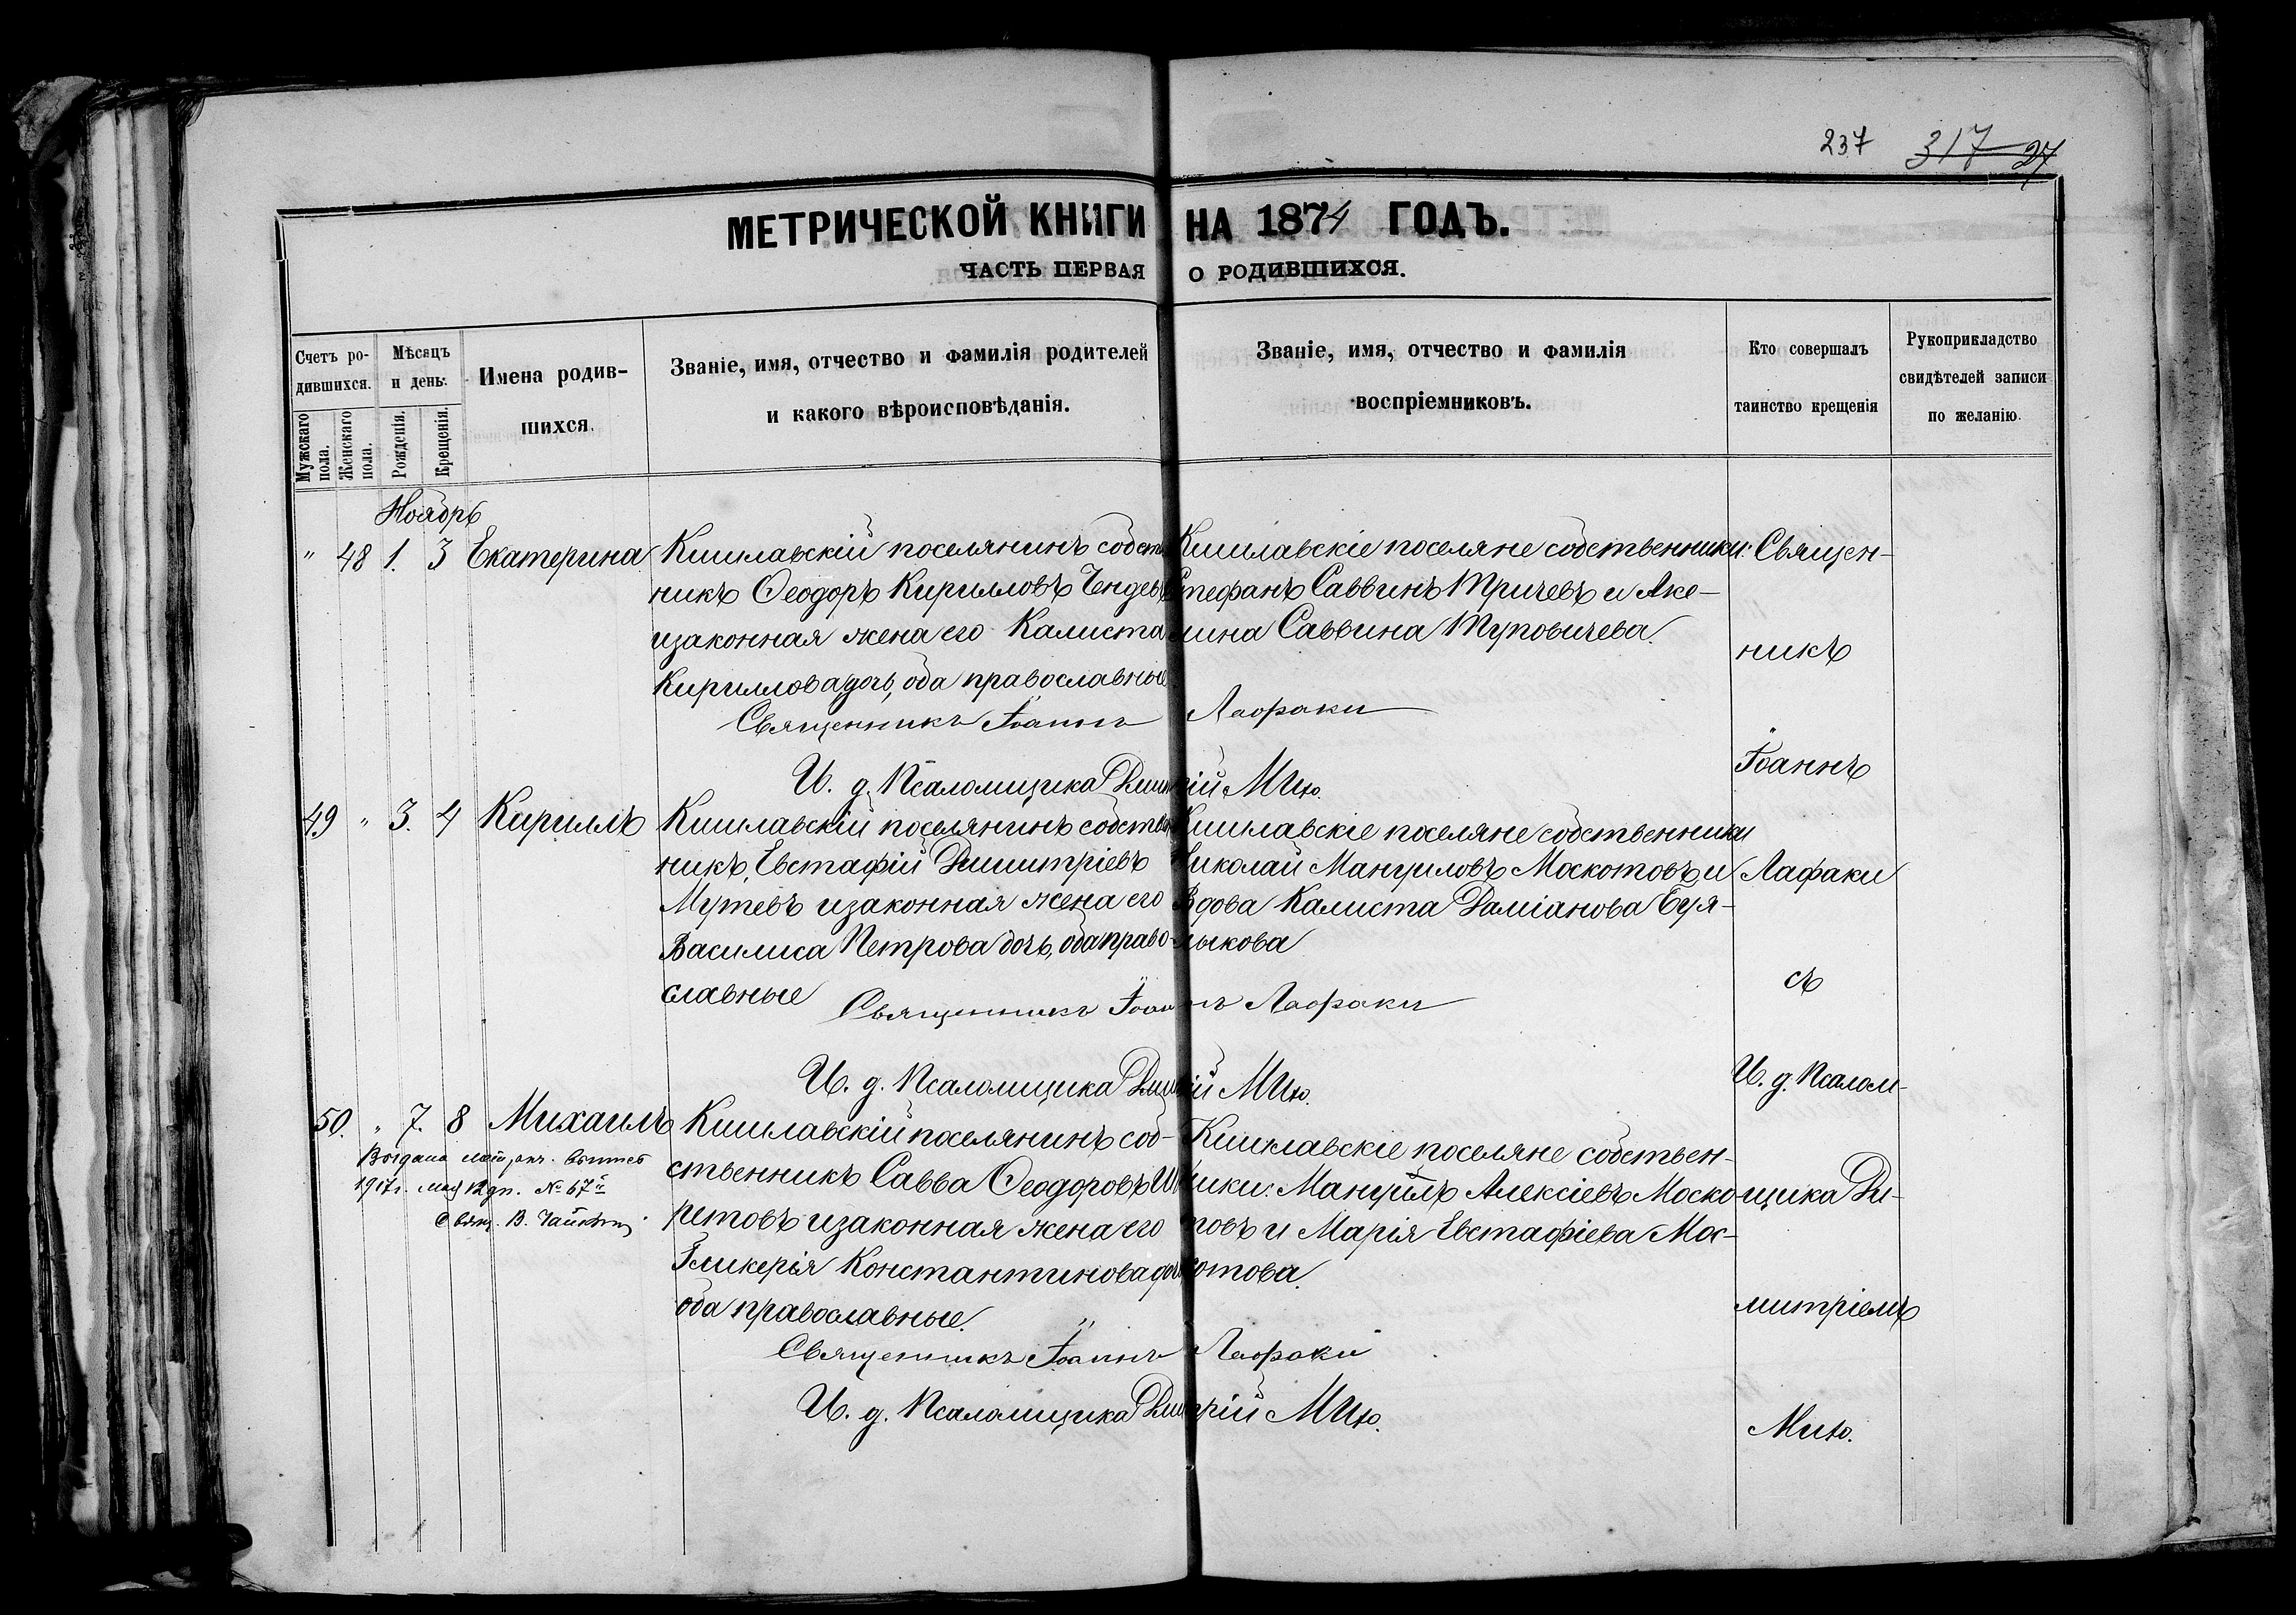 237 317 27
МЕТРИЧЕСКОЙ КНИГИ НА 1874 ГОДЪ.
ЧАСТЬ ПЕРВАЯ О РОДИВШИХСЯ.
Счетъ ро-
дившихся.
Мужскаго пола.
Женскаго пола.
Мѣсяцъ
и день.
Рожденія.
Крещенія.
Имена родив-
шихся.
Званіе, имя, отчество и фамилія родителей
и какого вѣроисповѣданія.
Званіе, имя, отчество и фамилія
воспріемниковъ.
Кто совершалъ
таинство крещенія
Рукоприкладство
свидѣтелей записи
по желанію.
Ноябрь
" 48 1. 3 Екатерина
Кишлавскій поселянинъ собств
никъ Ѳеодоръ Кирилловъ
и законная жена его Калиста
Кириллова дочь, оба православные
Кишлавскіе поселяне собственники:
Стефанъ Саввинъ Тричевъ и Аке-
лина Саввина Туповичева.
Священникъ Іоаннъ Лафаки
И. д. Псаломщика Димитрій Мию.
49 " 3. 4 Кириллъ
Кишлавскій поселянинъ собствен
никъ, Евстафій Димитріевъ
Мутевъ и законная жена его
Василиса Петрова дочь, оба право-
славные
Кишлавскіе поселяне собственники
Николай Мануиловъ Москотовъ и
Вдова Калиста Даміанова Буя-
лыкова
Священникъ Іоаннъ Лафаки
И. д. Псаломщика Димитрій Мию.
50. " 7. 8 Михаилъ
Выдана
1917 г. мая 12 дн. № 67й
Свящ. В.
Кишлавскій поселянинъ соб-
ственникъ Савва Ѳеодоровъ
ретовъ и законная жена его
Гликерія Константинова дочь
оба православные.
Кишлавскіе поселяне собствен-
ники: Мануилъ Алексіевъ Моско-
товъ и Марія Евстафіева Мос-
котова.
Священникъ Іоаннъ Лафаки
И. д. Псаломщика Димитрій Мию.
Священ-
никъ
Іоаннъ
Лафаки
съ
И. д. Псалом-
щика Ди-
митріемъ
Мию.